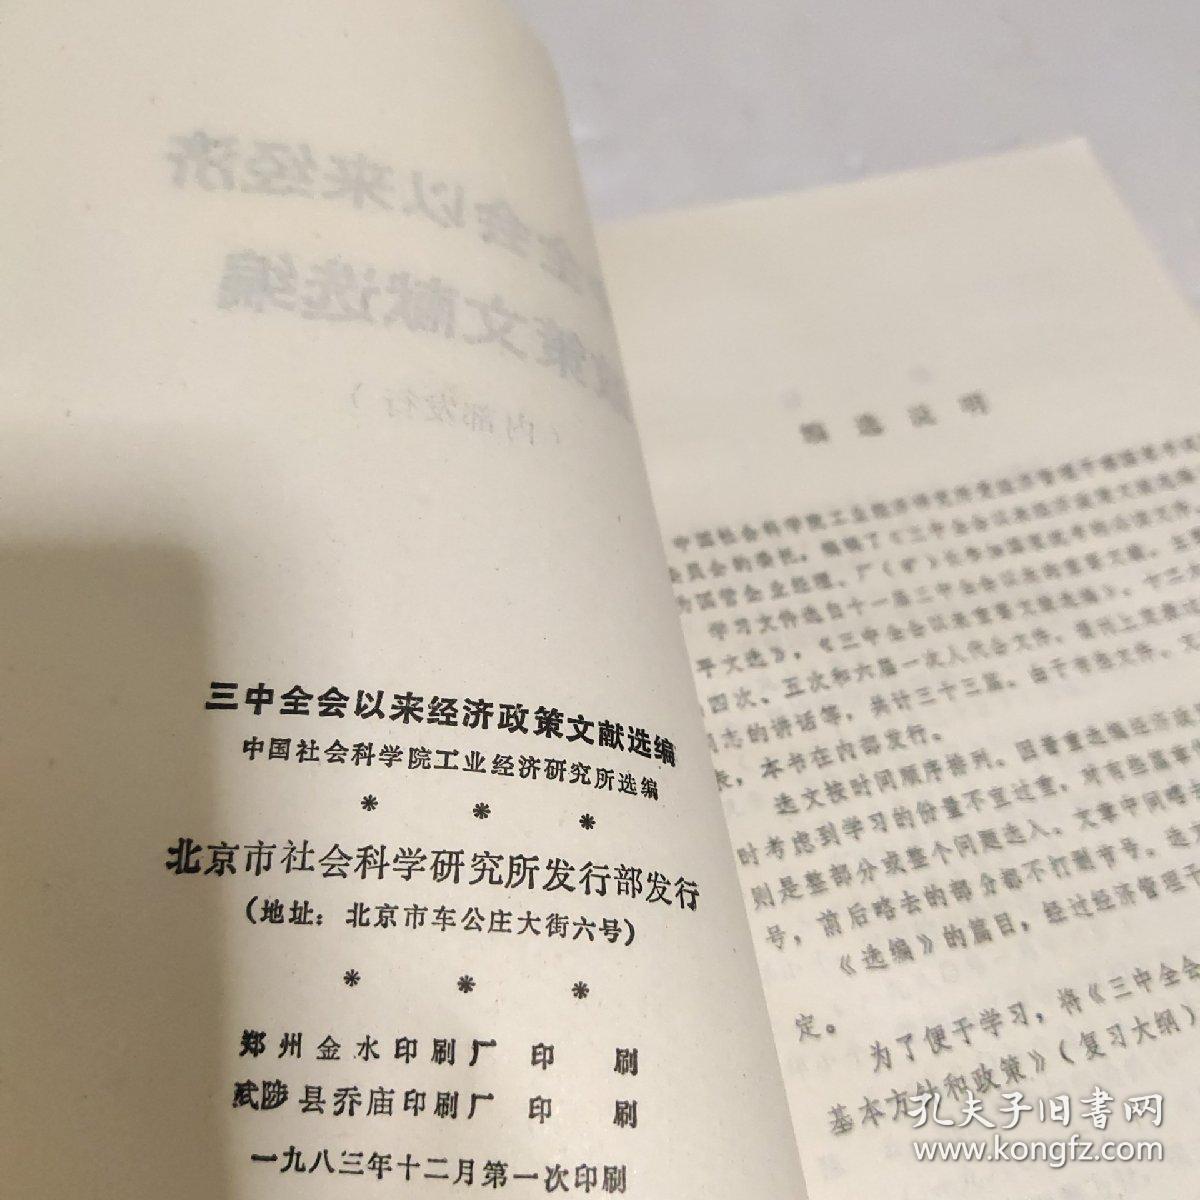 三中全会以来经济政策文献选编
中国社会科学院工业经济研究所选编
* * *
北京市社会科学研究所发行部发行
(地址：北京市车公庄大街六号)
* * *
郑州金水印刷厂 印 刷
武陟县乔庙印刷厂 印 刷
一九八三年十二月第一次印刷
编选说明
中国社会科学院工业经济研究所受经济管理干部国家考试
委员会的委托，编辑了《三中全会以来经济政策文献选编
为国营企业经理、厂（矿）长参加国家统考的必读文件。
学习文件选自十一届三中全会以来的重要文献。主要
平文选》，《三中全会以来重要文献选编》，十二大
四次、五次和六届一次人代会文件、
同志的讲话等，共计三十三篇。由于有些文件、文
表，本书在内部发行。
选文按时间顺序排列。因着重选编经济政
时考虑到学习的份量不宜过重，对有些篇章
则是整部分或整个问题选入。文章中间略去
号，前后略去的部分都不打删节号。选
《选编》的篇目，经过经济管理干
定。
为了便于学习，将《三中全会
基本方针和政策》（复习大纲）
孔夫子旧书网
www.kongfz.com